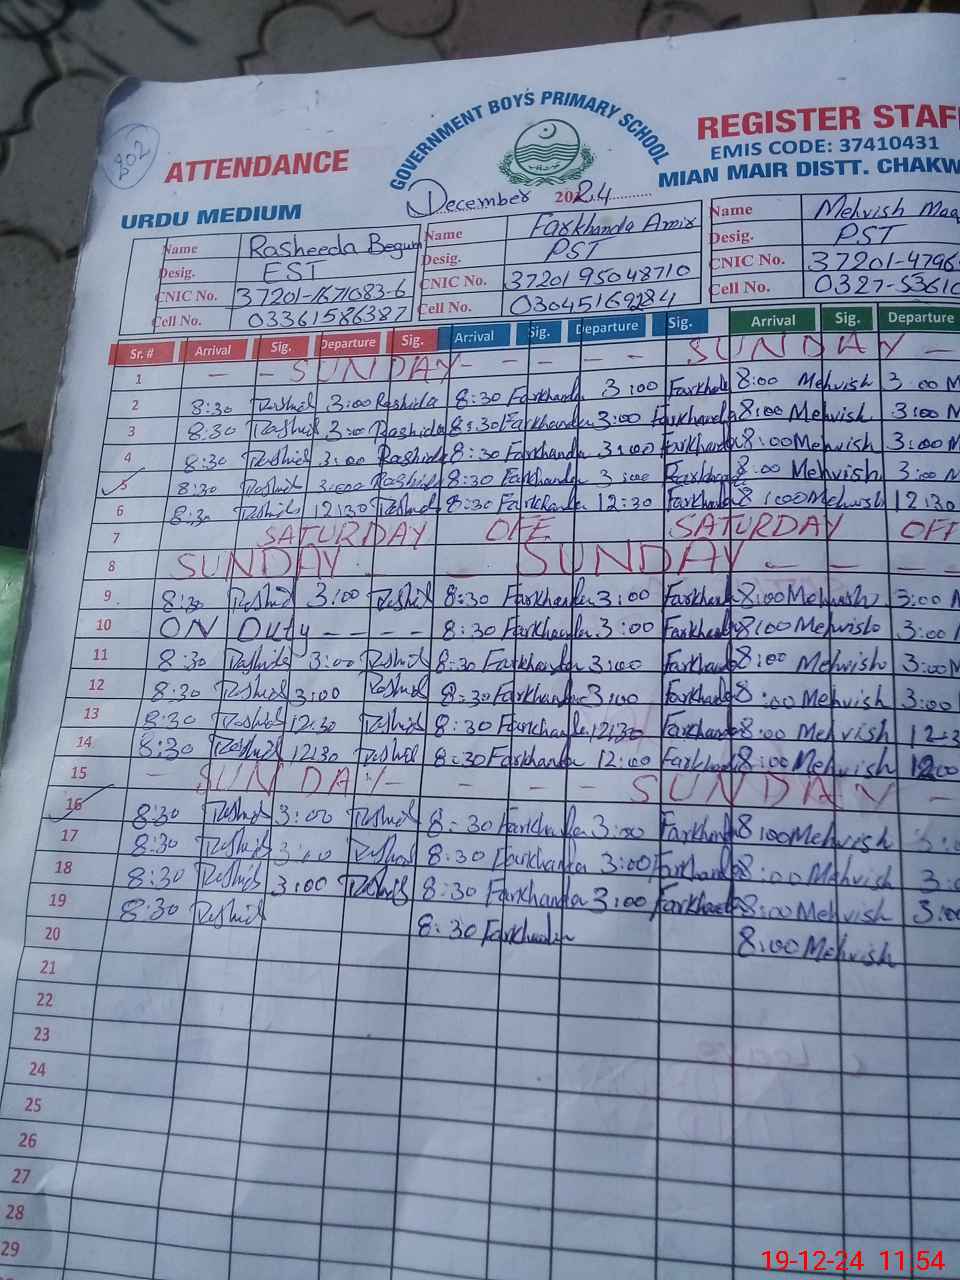 802
GOVERNMENT BOYS PRIMARY SCHOOL
REGISTER STAF
ATTENDANCE
EMIS CODE: 37410431
MIAN MAIR DISTT. CHAKW
December 2024
URDU MEDIUM
Name Rasheeda Begum Name Farkhanda Amir Name Mehvish
Desig. EST Desig. PST Desig. PST
CNIC No. 37201-1671083-6 CNIC No. 37201 95048710 CNIC No. 37201-4796
Cell No. 03361586387 Cell No. 03045169284 Cell No. 0327-53610
Sr. # Arrival Sig. Departure Sig. Arrival Sig. Departure Sig. Arrival Sig. Departure
1 - - SUNDAY - - - - - SUNDAY -
2 8:30 Rashid 3:00 Rashida 8:30 Farkhanda 3:00 Farkhada 8:00 Mehvish 3:00 M
3 8:30 Rashid 3:00 Rashida 8:30 Farkhanda 3:00 Farkhanda 8:00 Mehvish 3:00 M
4 8:30 Rashid 3:00 Rashida 8:30 Farkhanda 3:00 Farkhanda 8:00 Mehvish 3:00 M
5 8:30 Rashid 3:00 Rashida 8:30 Farkhanda 3:00 Farkhanda 8:00 Mehvish 3:00 M
6 8:30 Rashid 12:30 Rashid 8:30 Farkhanda 12:30 Farkhanda 8:00 Mehvish 12:30
7 SATURDAY OFF SATURDAY OFF
8 SUNDAY - - SUNDAY - - - -
9 8:30 Rashid 3:00 Rashid 8:30 Farkhanda 3:00 Farkhanda 8:00 Mehvish 3:00 M
10 ON Duty - - - - 8:30 Farkhanda 3:00 Farkhanda 8:00 Mehvish 3:00 M
11 8:30 Rashid 3:00 Rashid 8:30 Farkhanda 3:00 Farkhanda 8:00 Mehvish 3:00 M
12 8:30 Rashid 3:00 Rashid 8:30 Farkhanda 3:00 Farkhanda 8:00 Mehvish 3:00
13 8:30 Rashid 12:30 Rashid 8:30 Farkhanda 12:30 Farkhanda 8:00 Mehvish 12:3
14 8:30 Rashid 12:30 Rashid 8:30 Farkhanda 12:00 Farkhanda 8:00 Mehvish 12:00
15 - SUNDAY - - - - SUNDAY -
16 8:30 Rashid 3:00 Rashid 8:30 Farkhanda 3:00 Farkhanda 8:00 Mehvish 3:0
17 8:30 Rashid 3:00 Rashid 8:30 Farkhanda 3:00 Farkhanda 8:00 Mehvish 3:0
18 8:30 Rashid 3:00 Rashid 8:30 Farkhanda 3:00 Farkhanda 8:00 Mehvish 3:00
19 8:30 Rashid 8:30 Farkhanda 8:00 Mehvish
20
21
22
23
24
25
26
27
28
29
19-12-24 11:54